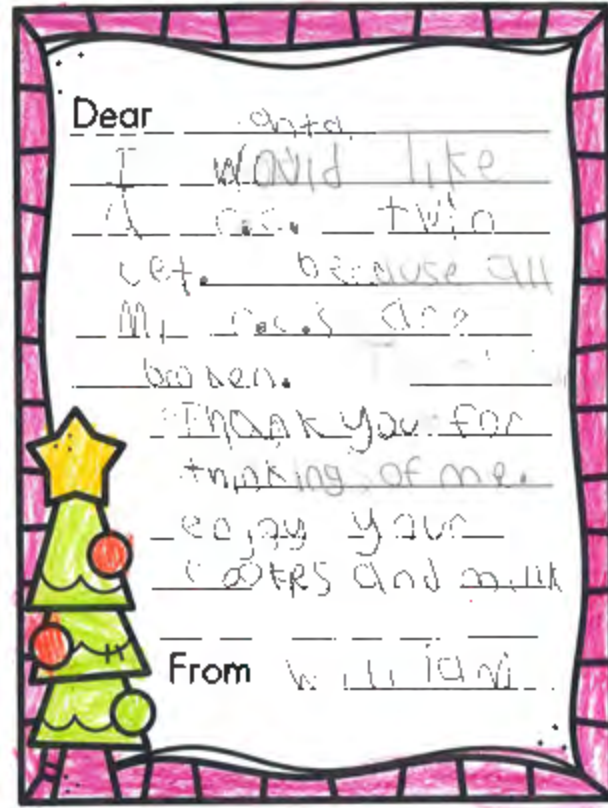 Dear Santa
I would like
a r.c. twin
jet. because all
my r.c.s are
broken.
Thank you for
thinking of me.
enjoy your
cookies and milk
From William